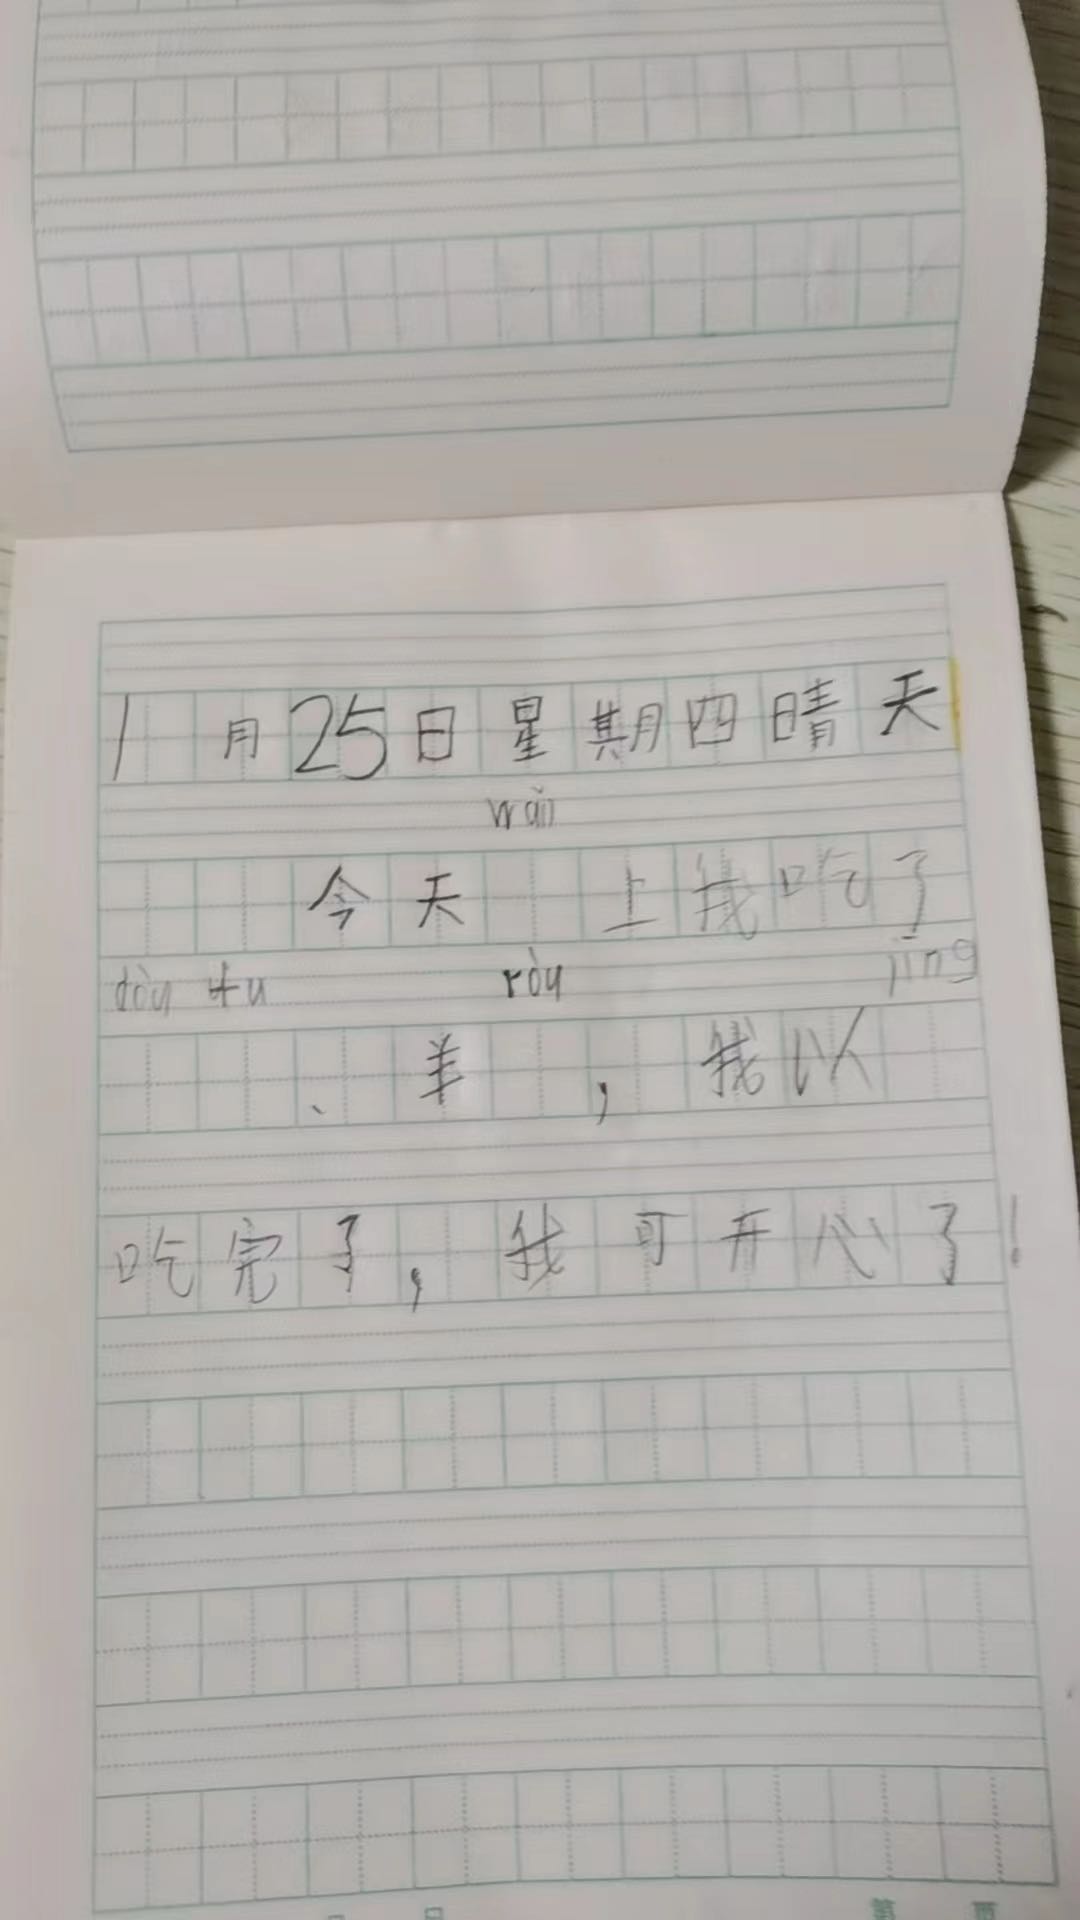 1月25日星期四晴天
wǎn
今天 上我吃了
dòu fu ròu jīng
、羊 ，我以
吃完了，我可开心了！